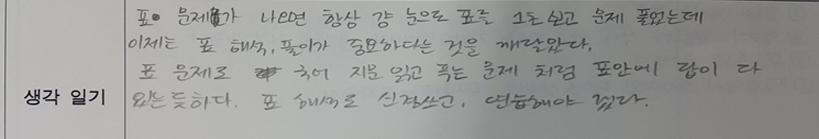 표 문제가 나오면 항상 걍 눈으로 표를 보고 문제 풀었는데
이제는 표 해석, 풀이가 중요하다는 것을 깨달았다.
표 문제도 국어 지문 읽고 푸는 문제 처럼 표안에 답이 다
생각 일기
있는듯하다. 표 해석도 신경쓰고, 연습해야 겠다.